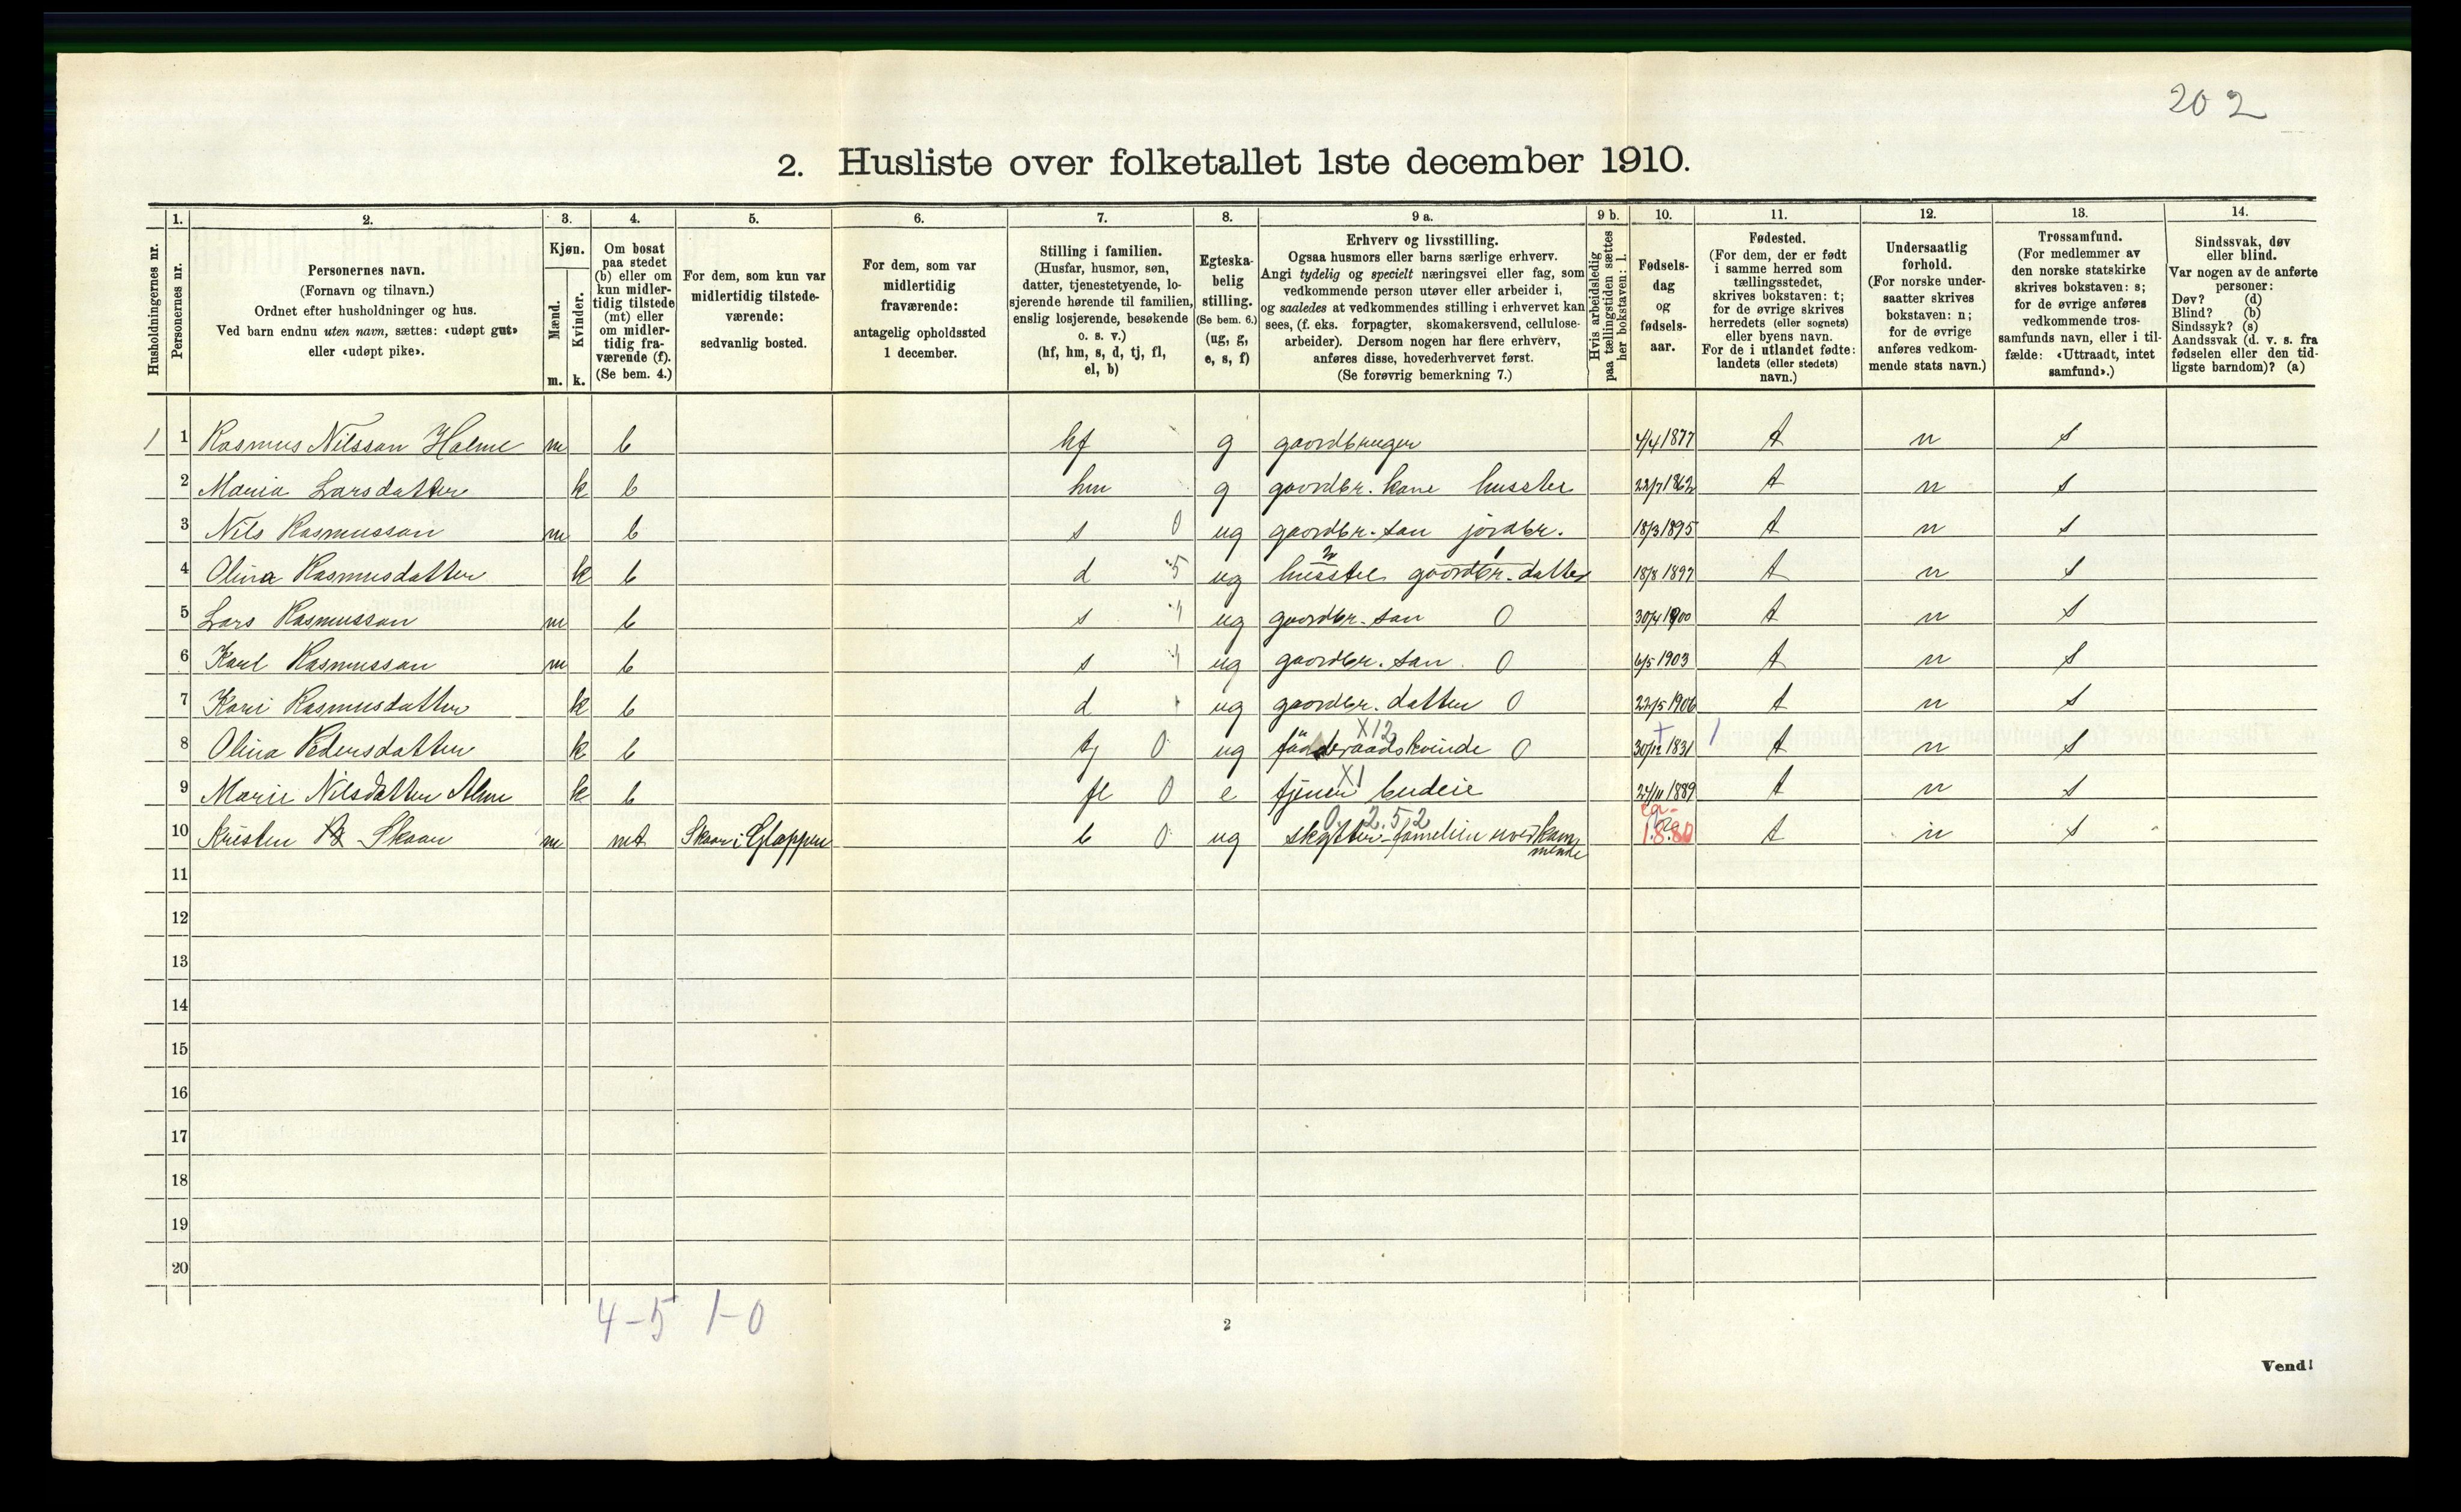 202
2. Husliste over folketallet 1ste december 1910.
Husholdningernes nr.
1.
Personernes nr.
2.
Personernes navn.
(Fornavn og tilnavn.)
Ordnet efter husholdninger og hus.
Ved barn endnu uten navn, sættes: «udøpt gut»
eller «udøpt pike».
3.
Kjøn.
Mænd.
m.
Kvinder.
k.
4.
Om bosat
paa stedet
(b) eller om
kun midler-
tidig tilstede
(mt) eller
om midler-
tidig fra-
værende (f).
(Se bem. 4.)
5.
For dem, som kun var
midlertidig tilstede-
værende:
sedvanlig bosted.
6.
For dem, som var
midlertidig
fraværende:
antagelig opholdssted
1 december.
7.
Stilling i familien.
(Husfar, husmor, søn,
datter, tjenestetyende, lo-
sjerende hørende til familien,
enslig losjerende, besøkende
o. s. v.)
(hf, hm, s, d, tj, fl,
el, b)
8.
Egteska-
belig
stilling.
(Se bem. 6.)
(ug, g,
e, s, f)
9 a.
Erhverv og livsstilling.
Ogsaa husmors eller barns særlige erhverv.
Angi tydelig og specielt næringsvei eller fag, som
vedkommende person utøver eller arbeider i,
og saaledes at vedkommendes stilling i erhvervet kan
sees, (f. eks. forpagter, skomakersvend, cellulose-
arbeider). Dersom nogen har flere erhverv,
anføres disse, hovederhvervet først.
(Se forøvrig bemerkning 7.)
9 b.
Hvis arbeidsledig
paa tællingstiden sættes
her bokstaven: l.
10.
Fødsels-
dag
og
fødsels-
aar.
11.
Fødested.
(For dem, der er født
i samme herred som
tællingsstedet,
skrives bokstaven: t;
for de øvrige skrives
herredets (eller sognets)
eller byens navn.
For de i utlandet fødte:
landets (eller stedets)
navn.)
12.
Undersaatlig
forhold.
(For norske under-
saatter skrives
bokstaven: n;
for de øvrige
anføres vedkom-
mende stats navn.)
13.
Trossamfund.
(For medlemmer av
den norske statskirke
skrives bokstaven: s;
for de øvrige anføres
vedkommende tros-
samfunds navn, eller i til-
fælde: «Uttraadt, intet
samfund».)
14.
Sindssvak, døv
eller blind.
Var nogen av de anførte
personer:
Døv? (d)
Blind? (b)
Sindssyk? (s)
Aandssvak (d. v. s. fra
fødselen eller den tid-
ligste barndom)? (a)
1 1 Rasmus Nilsson Holme m b hf g gaardbruger 4/4 1877 t n s
2 Maria Larsdatter k b hm g gaardbr. kone husstel 22/7 1862 t n s
3 Nils Rasmusson m b s 0 ug gaardbr. søn jordbr. 18/3 1895 t n s
4 Olina Rasmusdatter k b d 5 ug husstel gaardbr. datter 18/8 1897 t n s
5 Lars Rasmusson m b s ug gaardbr. søn 0 30/4 1900 t n s
6 Karl Rasmusson m b s ug gaardbr. søn 0 6/5 1903 t n s
7 Kari Rasmusdatter k b d ug gaardbr. datter 0 22/5 1906 t n s
X12
8 Olina Pedersdatter k b tj 0 ug føderaadskvinde 0 30/12 1831 t n s
X1
9 Marie Nilsdatter k b fl 0 e tjener budeie 24/11 1889 t n s
0. 2. 5 2
10 Kristen Skaar m mt Skaar i Gloppen b 0 ug 1880 t n s
11
12
13
14
15
16
17
18
19
20
4-5 1-0
2
Vend!